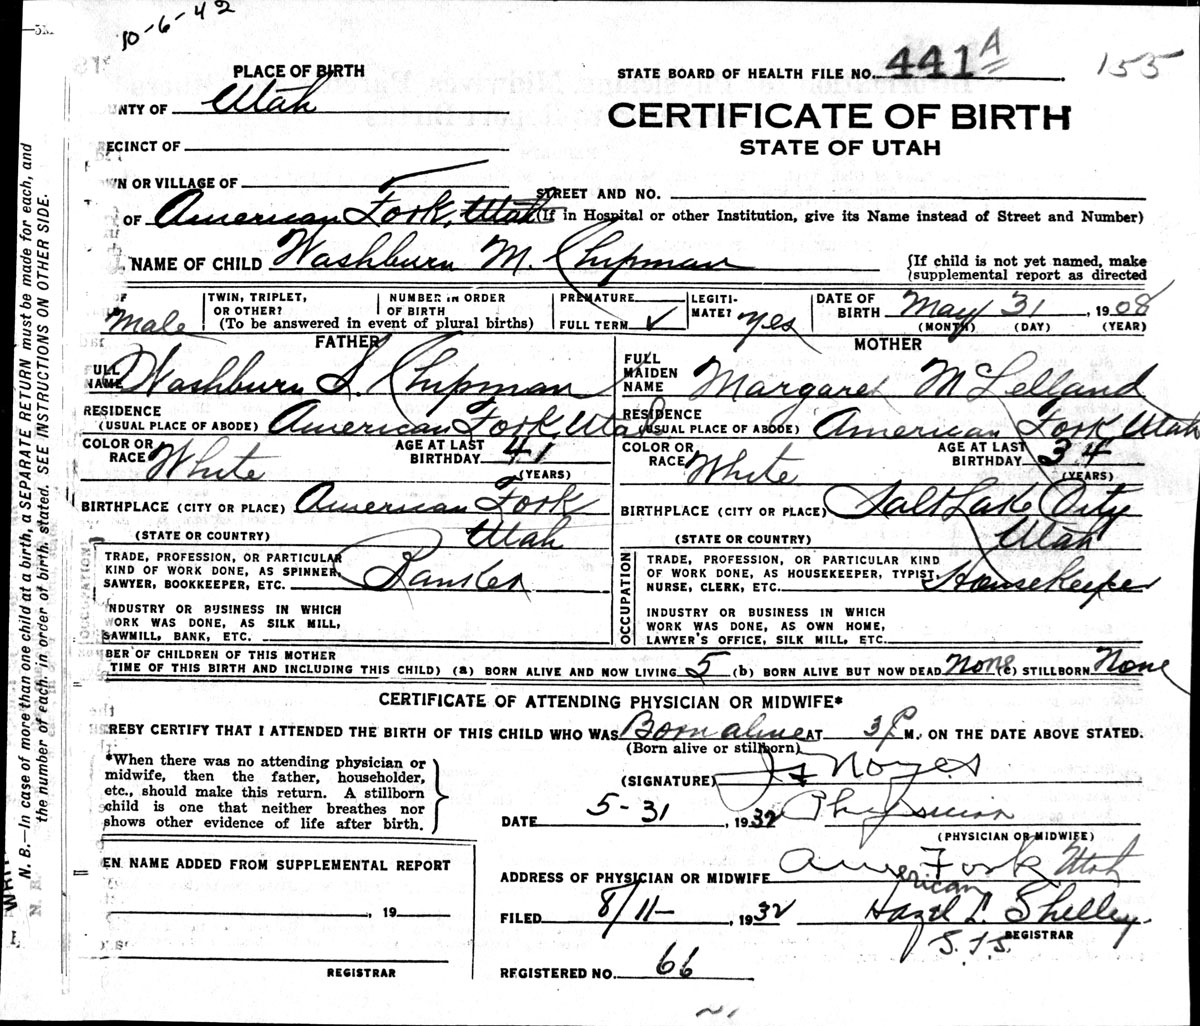 10-6-42
155
PLACE OF BIRTH
STATE BOARD OF HEALTH FILE NO. 441 A
UNTY OF Utah
CERTIFICATE OF BIRTH
STATE OF UTAH
ECINCT OF
WN OR VILLAGE OF
STREET AND NO.
OF American Fork, Utah (If in Hospital or other Institution, give its Name instead of Street and Number)
NAME OF CHILD Washburn M. Chipman {If child is not yet named, make
supplemental report as directed
OF Male TWIN, TRIPLET, OR OTHER? NUMBER IN ORDER OF BIRTH (To be answered in event of plural births) PREMATURE FULL TERM ✓ LEGITI-MATE? yes DATE OF BIRTH May 31, 1908
(MONTH) (DAY) (YEAR)
FATHER MOTHER
FULL NAME Washburn S. Chipman FULL MAIDEN NAME Margaret McLelland
RESIDENCE (USUAL PLACE OF ABODE) American Fork Utah RESIDENCE (USUAL PLACE OF ABODE) American Fork Utah
COLOR OR RACE White AGE AT LAST BIRTHDAY 41 (YEARS) COLOR OR RACE White AGE AT LAST BIRTHDAY 34 (YEARS)
BIRTHPLACE (CITY OR PLACE) American Fork BIRTHPLACE (CITY OR PLACE) Salt Lake City
(STATE OR COUNTRY) Utah (STATE OR COUNTRY) Utah
OCCUPATION
TRADE, PROFESSION, OR PARTICULAR
KIND OF WORK DONE, AS SPINNER,
SAWYER, BOOKKEEPER, ETC. Banker
OCCUPATION
TRADE, PROFESSION, OR PARTICULAR KIND
OF WORK DONE, AS HOUSEKEEPER, TYPIST,
NURSE, CLERK, ETC. Housekeeper
INDUSTRY OR BUSINESS IN WHICH
WORK WAS DONE, AS SILK MILL,
SAWMILL, BANK, ETC.
INDUSTRY OR BUSINESS IN WHICH
WORK WAS DONE, AS OWN HOME,
LAWYER'S OFFICE, SILK MILL, ETC.
BER OF CHILDREN OF THIS MOTHER
TIME OF THIS BIRTH AND INCLUDING THIS CHILD) (a) BORN ALIVE AND NOW LIVING 5 (b) BORN ALIVE BUT NOW DEAD None (c) STILLBORN None
CERTIFICATE OF ATTENDING PHYSICIAN OR MIDWIFE*
EREBY CERTIFY THAT I ATTENDED THE BIRTH OF THIS CHILD WHO WAS Born alive AT 3 P M. ON THE DATE ABOVE STATED.
(Born alive or stillborn)
*When there was no attending physician or
midwife, then the father, householder,
etc., should make this return. A stillborn
child is one that neither breathes nor
shows other evidence of life after birth.
(SIGNATURE) Noyes
DATE 5-31, 1932 Physician
(PHYSICIAN OR MIDWIFE)
EN NAME ADDED FROM SUPPLEMENTAL REPORT
ADDRESS OF PHYSICIAN OR MIDWIFE American Fork Utah
, 19
FILED 8/11-, 1932 Hazel L. Shelley
REGISTRAR
REGISTRAR
REGISTERED NO. 66
N. B.—In case of more than one child at a birth, a SEPARATE RETURN must be made for each, and
the number of each, in order of birth, stated. SEE INSTRUCTIONS ON OTHER SIDE.